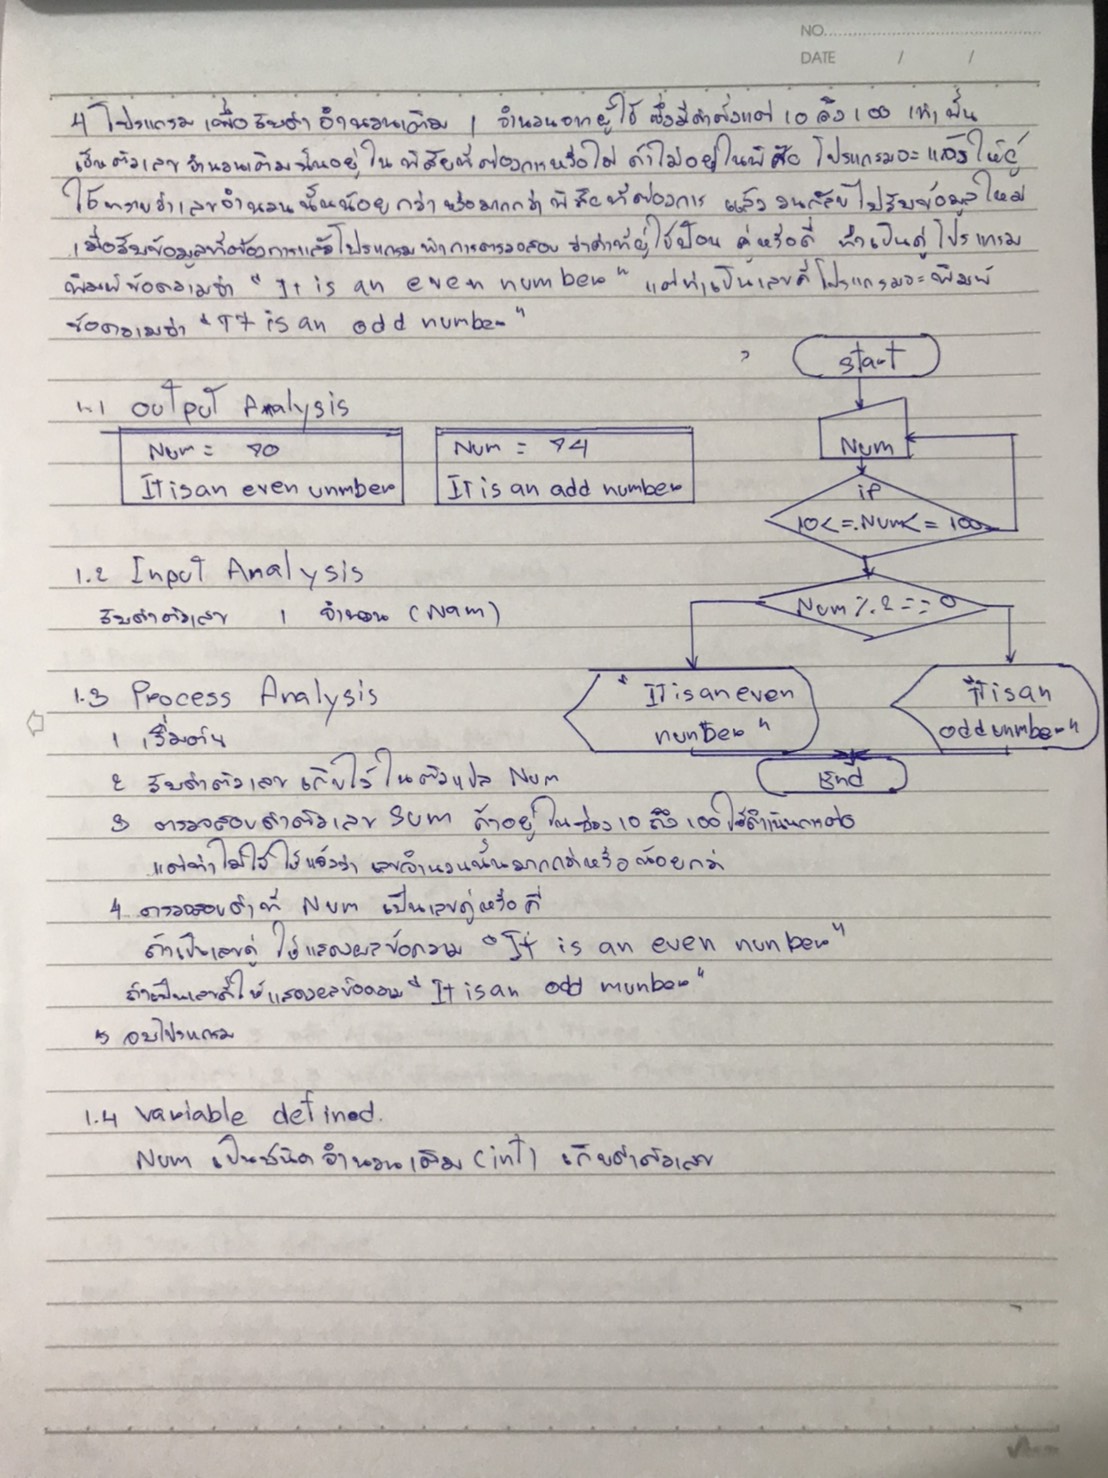 NO.
DATE / /
4 โปรแกรม เพื่อรับค่า จำนวนเต็ม 1 จำนวนจากผู้ใช้ ซึ่งมีค่าตั้งแต่ 10 ถึง 100 เท่านั้น
เป็นตัวเลขจำนวนเต็มนั้นอยู่ในพิสัยที่ต้องการหรือไม่ ถ้าไม่อยู่ในพิสัย โปรแกรมจะแจ้งให้ผู้
ใช้ทราบว่าเลขจำนวนนั้นน้อยกว่าหรือมากกว่าพิสัยที่ต้องการ แล้ววนกลับไปรับข้อมูลใหม่
เมื่อรับข้อมูลที่ต้องการแล้วโปรแกรมทำการตรวจสอบ ว่าค่าที่ผู้ใช้ป้อน คู่หรือคี่ ถ้าเป็นคู่โปรแกรม
พิมพ์ข้อความว่า "It is an even number" แต่ถ้าเป็นเลขคี่โปรแกรมจะพิมพ์
ข้อความว่า "IT is an odd number"
start
1.1 Output Analysis
Num = 90
IT is an even unmber
Num = 94
IT is an add number
Num
if
10<=.Num<= 100
1.2 Input Analysis
รับค่าตัวเลข 1 จำนวน (Nam)
Num % 2 == 0
"IT is an even
number"
"IT is an
odd unmber"
End
1.3 Process Analysis
1 เริ่มต้น
2 รับค่าตัวเลข เก็บไว้ในตัวแปล Num
3 ตรวจสอบค่าตัวเลข Sum ถ้าอยู่ในช่วง 10 ถึง 100 ให้ดำเนินการต่อ
แต่ถ้าไม่ใช่ ให้แจ้งว่า เลขจำนวนนั้นมากกว่าหรือน้อยกว่า
4. ตรวจสอบค่าที่ Num เป็นเลขคู่หรือคี่
ถ้าเป็นเลขคู่ ให้แสดงผลข้อความ "It is an even number"
ถ้าเป็นเลขคี่ให้แสดงผลข้อความ "It is an odd munber"
5 จบโปรแกรม
1.4 Variable defined.
Num เป็นชนิดจำนวนเต็ม (int) เก็บค่าตัวเลข